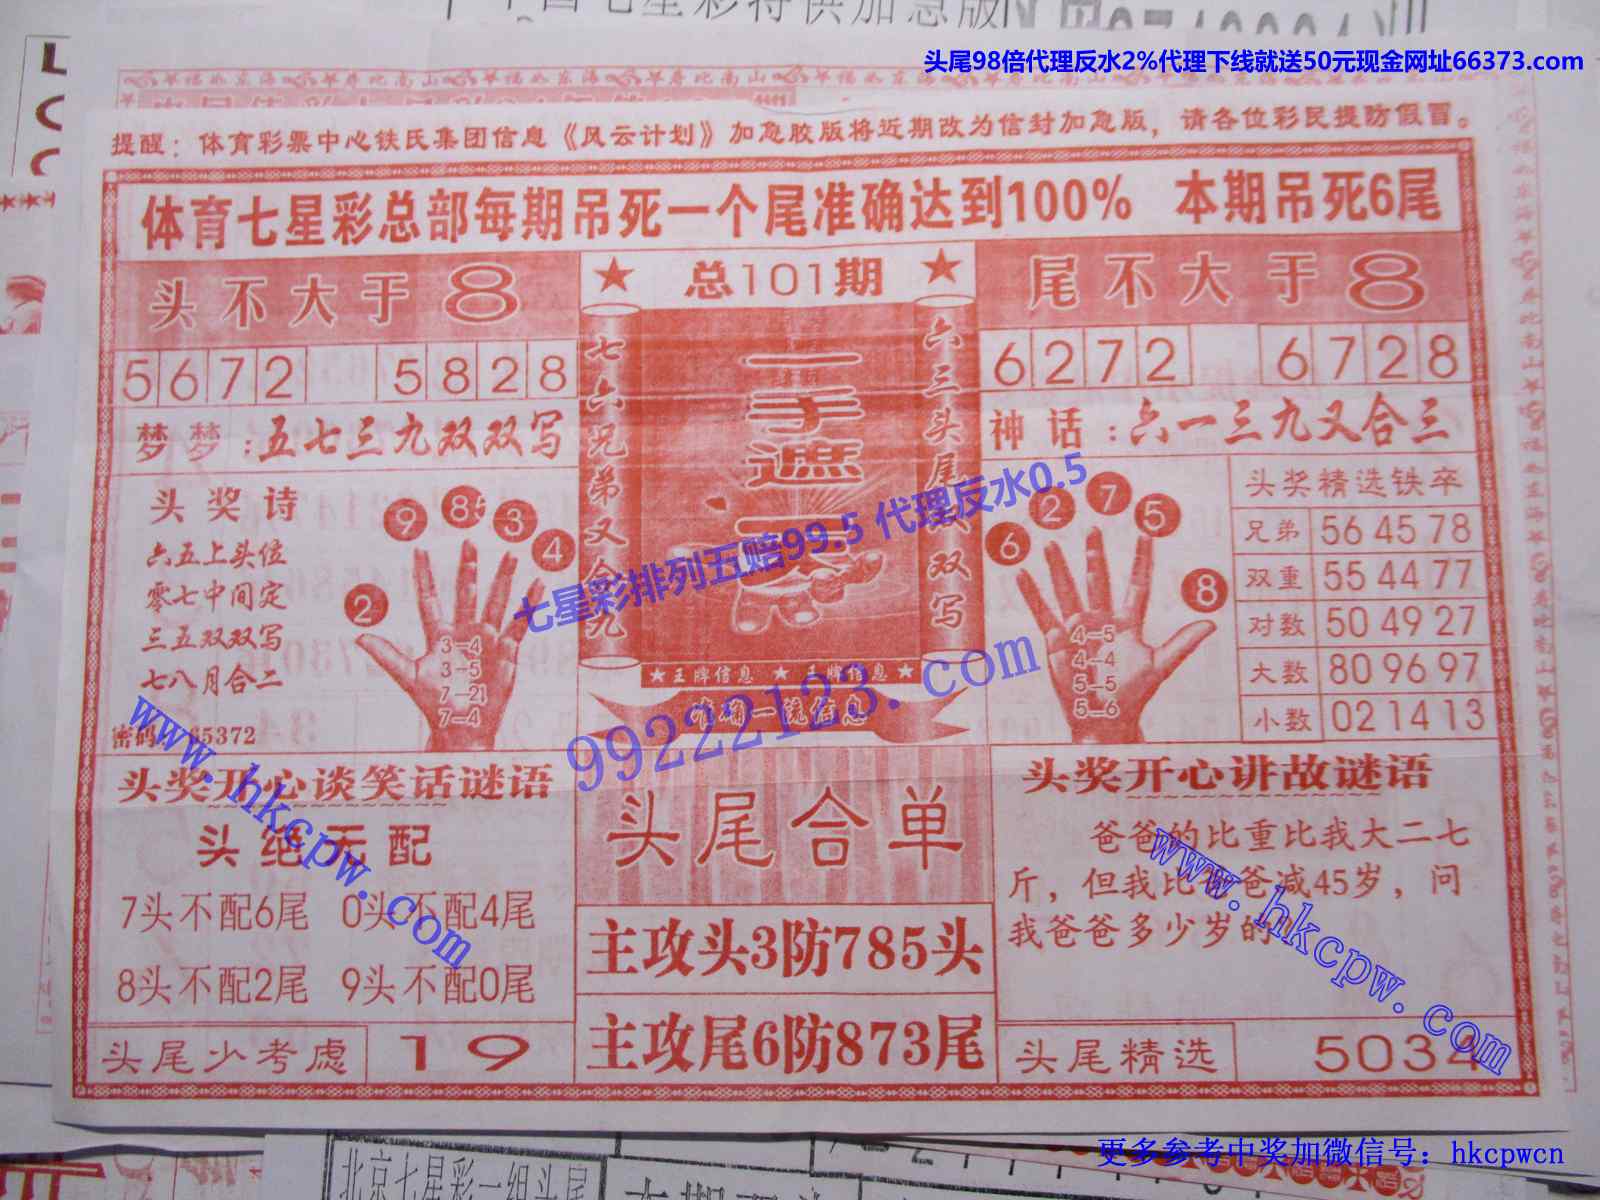 头尾98倍代理反水2%代理下线就送50元现金网址66373.com
提醒：体育彩票中心铁氏集团信息《风云计划》加急胶版将近期改为信封加急版，请各位彩民提防假冒。
体育七星彩总部每期吊死一个尾准确达到100% 本期吊死6尾
头不大于8
5672 5828
梦梦：五七三九双双写
头奖诗
六五上头位
零七中间定
三五双双写
七八月合二
9 85 3 4 2
3-4
3-5
7-21
7-4
★ 总101期 ★
七六兄弟又合九
一手遮天
六三头尾 双写
★王牌信息 ★ 王牌信息★
准确一流信息
尾不大于8
6272 6728
神话：六一三九又合三
6 2 7 5 8
4-5
4-4
5-5
5-6
头奖精选铁卒
兄弟 56 45 78
双重 55 44 77
对数 50 49 27
大数 80 96 97
小数 02 14 13
七星彩排列五赔99.5 代理反水0.5
99222123.com
www.hkcpw.com
头奖开心谈笑话谜语
头绝无配
7头不配6尾 0头不配4尾
8头不配2尾 9头不配0尾
头尾少考虑 19
头尾合单
主攻头3防785头
主攻尾6防873尾
头奖开心讲故谜语
爸爸的比重比我大二七
斤，但我比爸爸减45岁，问
我爸爸多少岁的?
www.hkcpw.com
头尾精选 5034
更多参考中奖加微信号：hkcpwcn
北京七星彩一组头尾